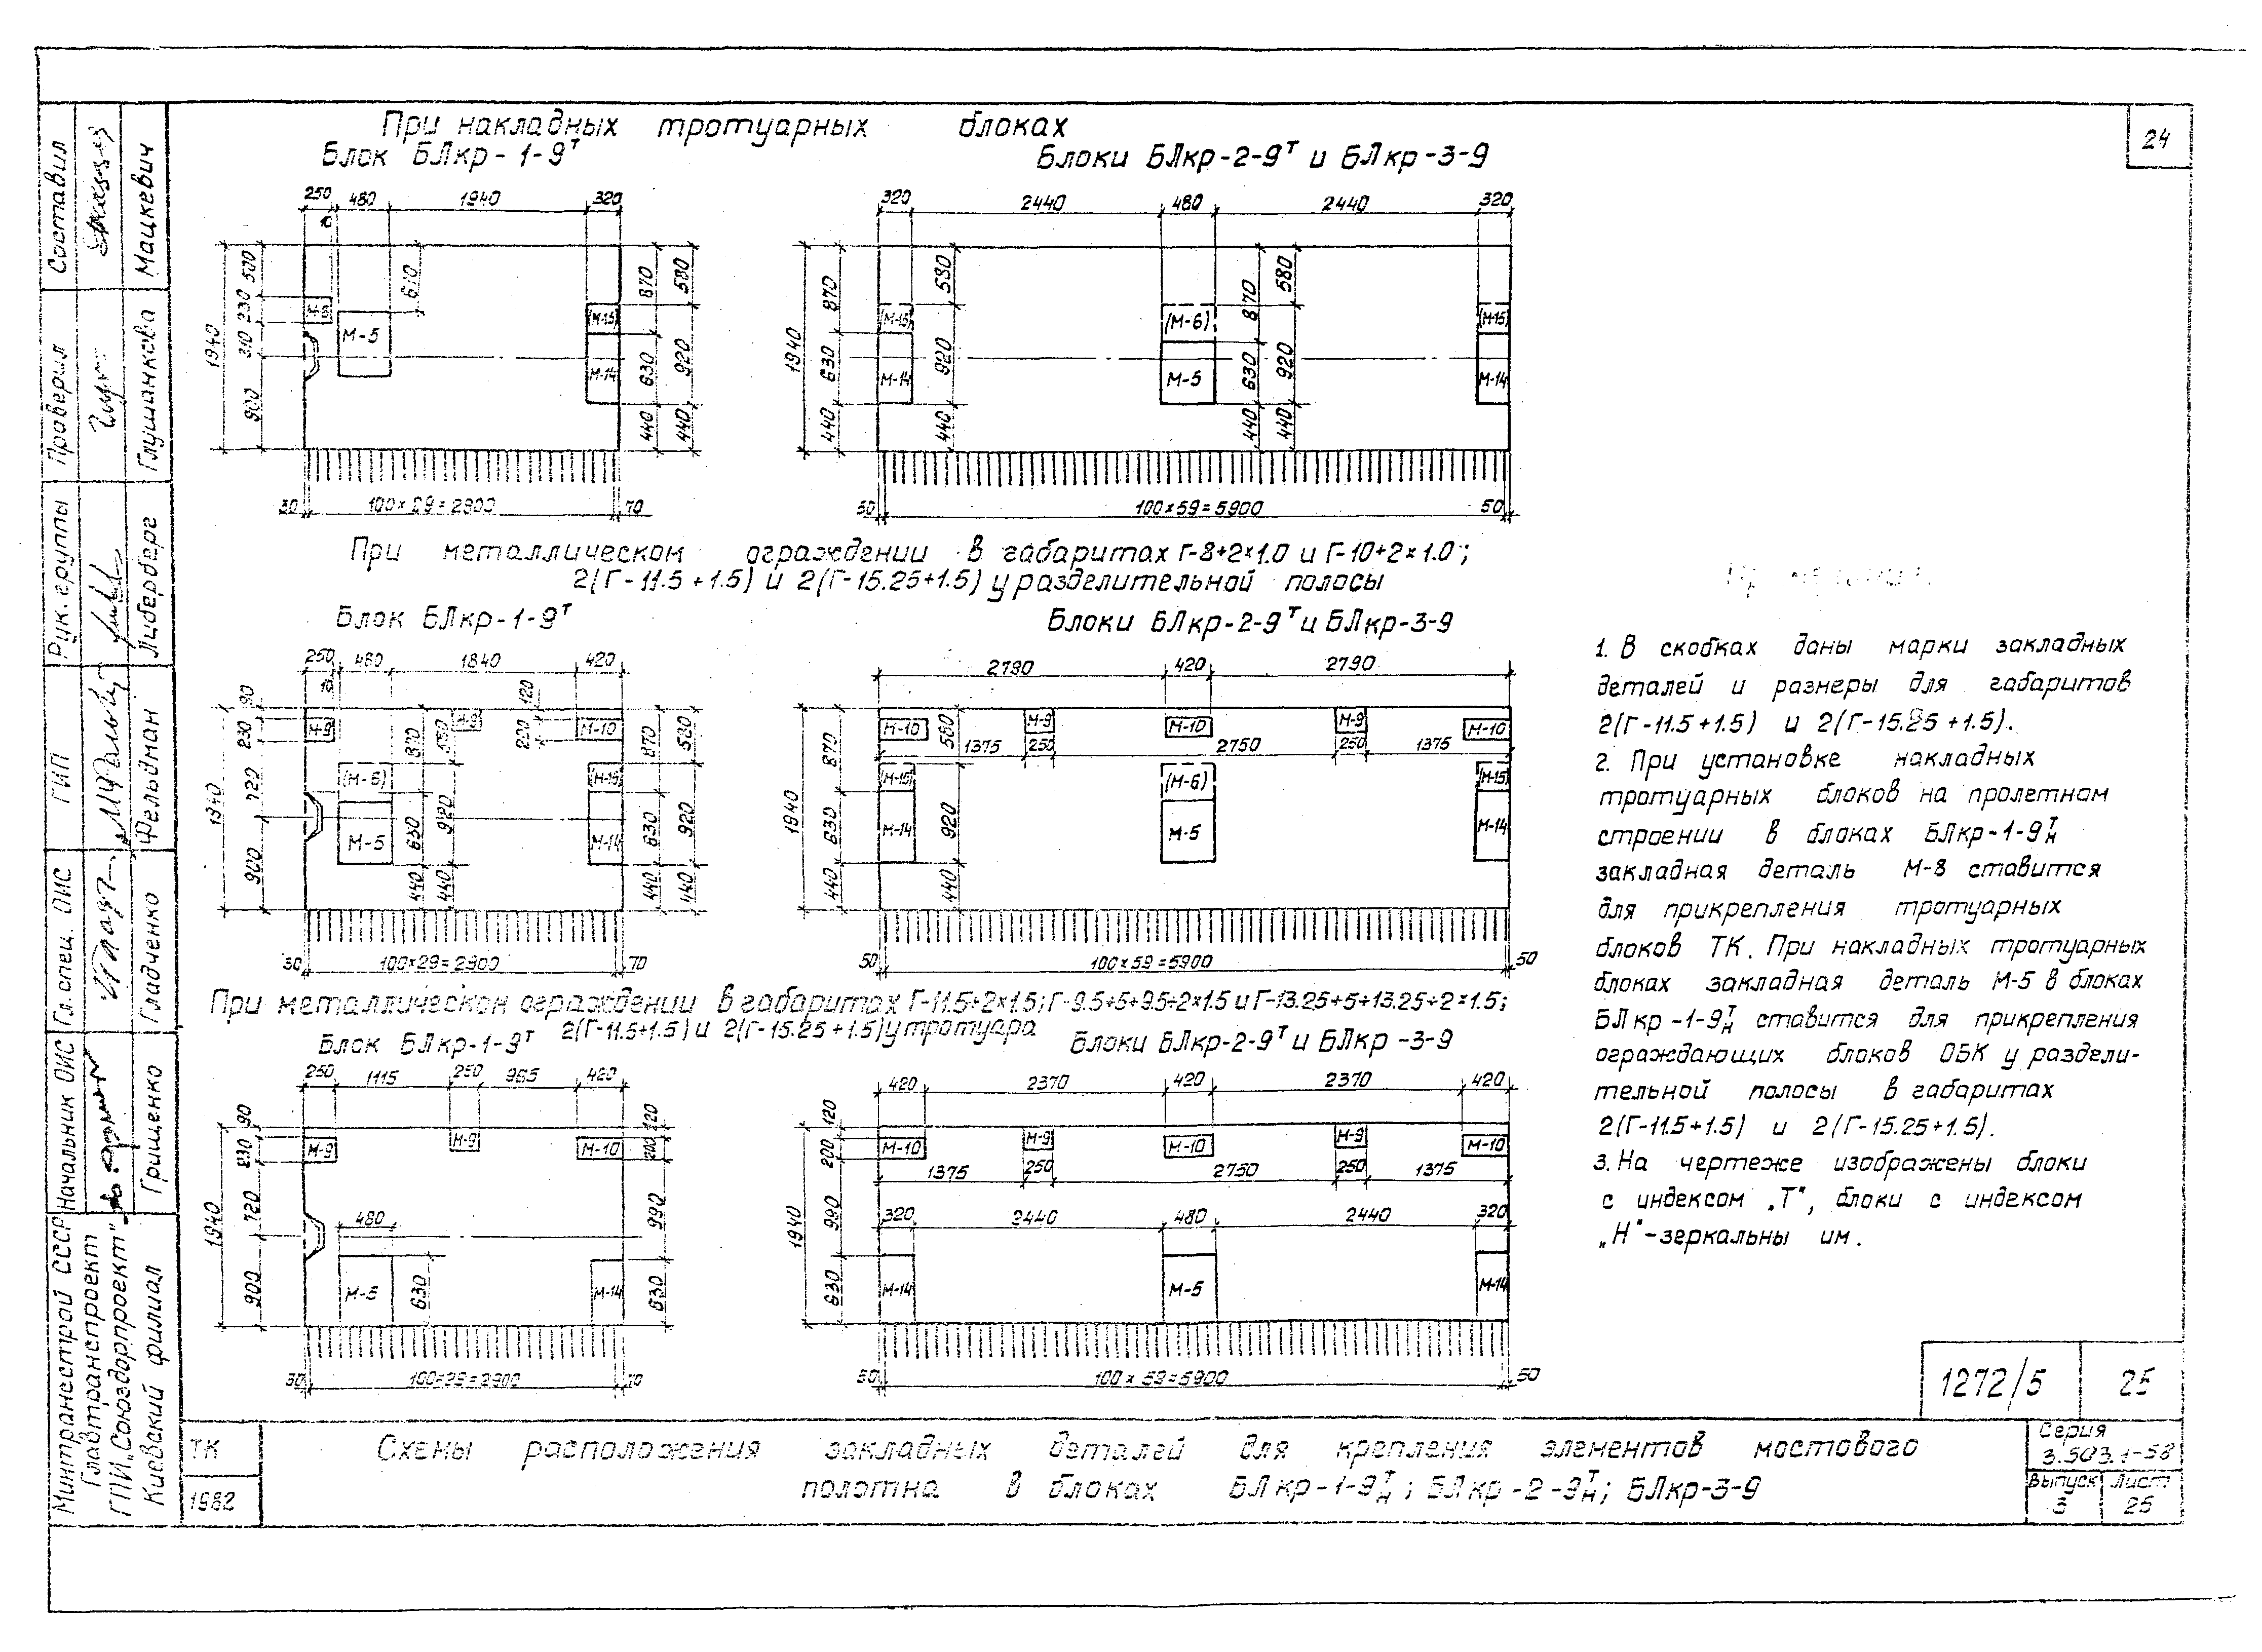 24
При накладных тротуарных блоках
Блок БЛкр-1-9ᵀ
Блоки БЛкр-2-9ᵀ и БЛкр-3-9
250 480 1940 320
320 2440 480 2440 320
1940 500 230 310 900
610
М-5 (М-15) М-14
870 630 440
580 920 440
1940 870 630 440
580 920 440
(М-15) (М-6) (М-15)
М-14 М-5 М-14
870 630 440
580 920 440
30 100×29=2900 70
50 100×59=5900 50
При металлическом ограждении в габаритах Г-8+2×1.0 и Г-10+2×1.0;
2(Г-11.5+1.5) и 2(Г-15.25+1.5) у разделительной полосы
Блок БЛкр-1-9ᵀ
Блоки БЛкр-2-9ᵀ и БЛкр-3-9
250 480 1840 420
10 120
2790 420 2790
1940 90 230 720 900
М-9 М-9 М-10
(М-6) (М-15)
М-5 М-14
870 630 440
920 440
870 630 440
580 920 440
М-10 М-9 М-10 М-9 М-10
1375 250 2750 250 1375
1940 870 630 440
580 920 440
(М-15) (М-6) (М-15)
М-14 М-5 М-14
30 100×29=2900 70
50 100×59=5900 50
При металлическом ограждении в габаритах Г-11.5+2×1.5; Г-9.5+5+9.5+2×1.5 и Г-13.25+5+13.25+2×1.5;
2(Г-11.5+1.5) и 2(Г-15.25+1.5) у тротуара
Блок БЛкр-1-9ᵀ
Блоки БЛкр-2-9ᵀ и БЛкр-3-9
250 1115 250 965 420
420 2370 420 2370 420
1940 90 230 720 900
М-9 М-9 М-10
120 200 990 630
480
М-5 630 М-14
1940 120 200 990 630
М-10 М-9 М-10 М-9 М-10
1375 250 2750 250 1375
320 2440 480 2440 320
М-14 М-5 М-14
30 100×29=2900 70
50 100×59=5900 50
1. В скобках даны марки закладных
деталей и размеры для габаритов
2(Г-11.5+1.5) и 2(Г-15.25+1.5).
2. При установке накладных
тротуарных блоков на пролетном
строении в блоках БЛкр-1-9ᵀн
закладная деталь М-8 ставится
для прикрепления тротуарных
блоков ТК. При накладных тротуарных
блоках закладная деталь М-5 в блоках
БЛкр-1-9ᵀн ставится для прикрепления
ограждающих блоков ОБК у раздели-
тельной полосы в габаритах
2(Г-11.5+1.5) и 2(Г-15.25+1.5).
3. На чертеже изображены блоки
с индексом „Т", блоки с индексом
„Н"-зеркальны им.
1272/5 25
ТК
1982
Схемы расположения закладных деталей для крепления элементов мостового
полотна в блоках БЛкр-1-9ᵀн; БЛкр-2-9ᵀн; БЛкр-3-9
Серия
3.503.1-58
Выпуск Лист
3 25
Составил Мацкевич
Проверил Глушанкова
Рук. группы Либерберг
ГИП Фельдман
Гл. спец. ОИС Гладченко
Начальник ОИС Грищенко
Минтрансстрой СССР
Главтранспроект
ГПИ „Союздорпроект"
Киевский филиал